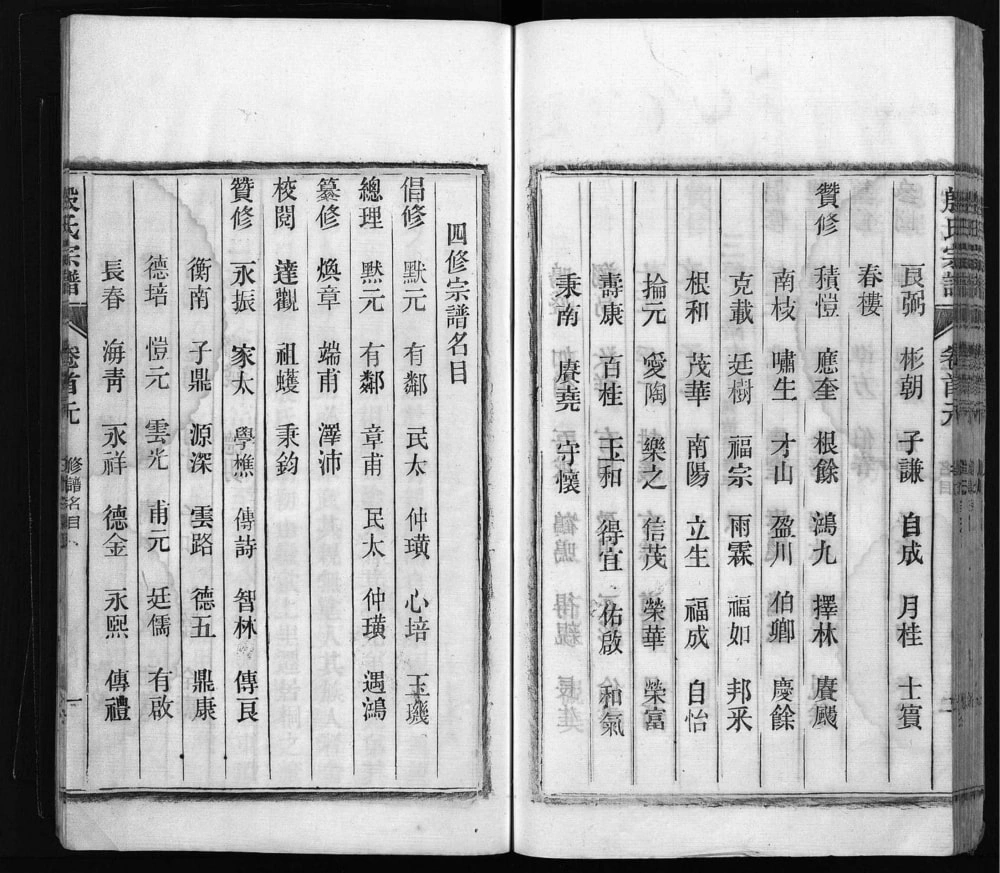 殷氏宗譜 卷首元
良弼 彬朝 子謙 自成 月桂 士賓
春樓
贊修 積愷 應奎 根餘 鴻九 擇林 賡颺
南枝 嘯生 才山 盈川 伯卿 慶餘
克載 廷樹 福宗 雨霖 福如 邦釆
根和 茂華 南陽 立生 福成 自怡
掄元 愛陶 樂之 信茂 榮華 榮富
壽康 百桂 玉和 得宜 佑啟 和氣
秉南 賡堯 守懷
四修宗譜名目
倡修 默元 有鄰 民太 仲璜 心培 玉璣
總理 默元 有鄰 章甫 民太 仲璜 遇鴻
纂修 煥章 端甫 澤沛
校閱 達觀 祖蠖 秉鈞
贊修 永振 家太 學樵 傳詩 智林 傳良
衡南 子鼎 源深 雲路 德五 鼎康
德培 愷元 雲光 甫元 廷儒 有啟
長春 海青 永祥 德金 永熙 傳禮
殷氏宗譜 卷首元 修譜名目 一